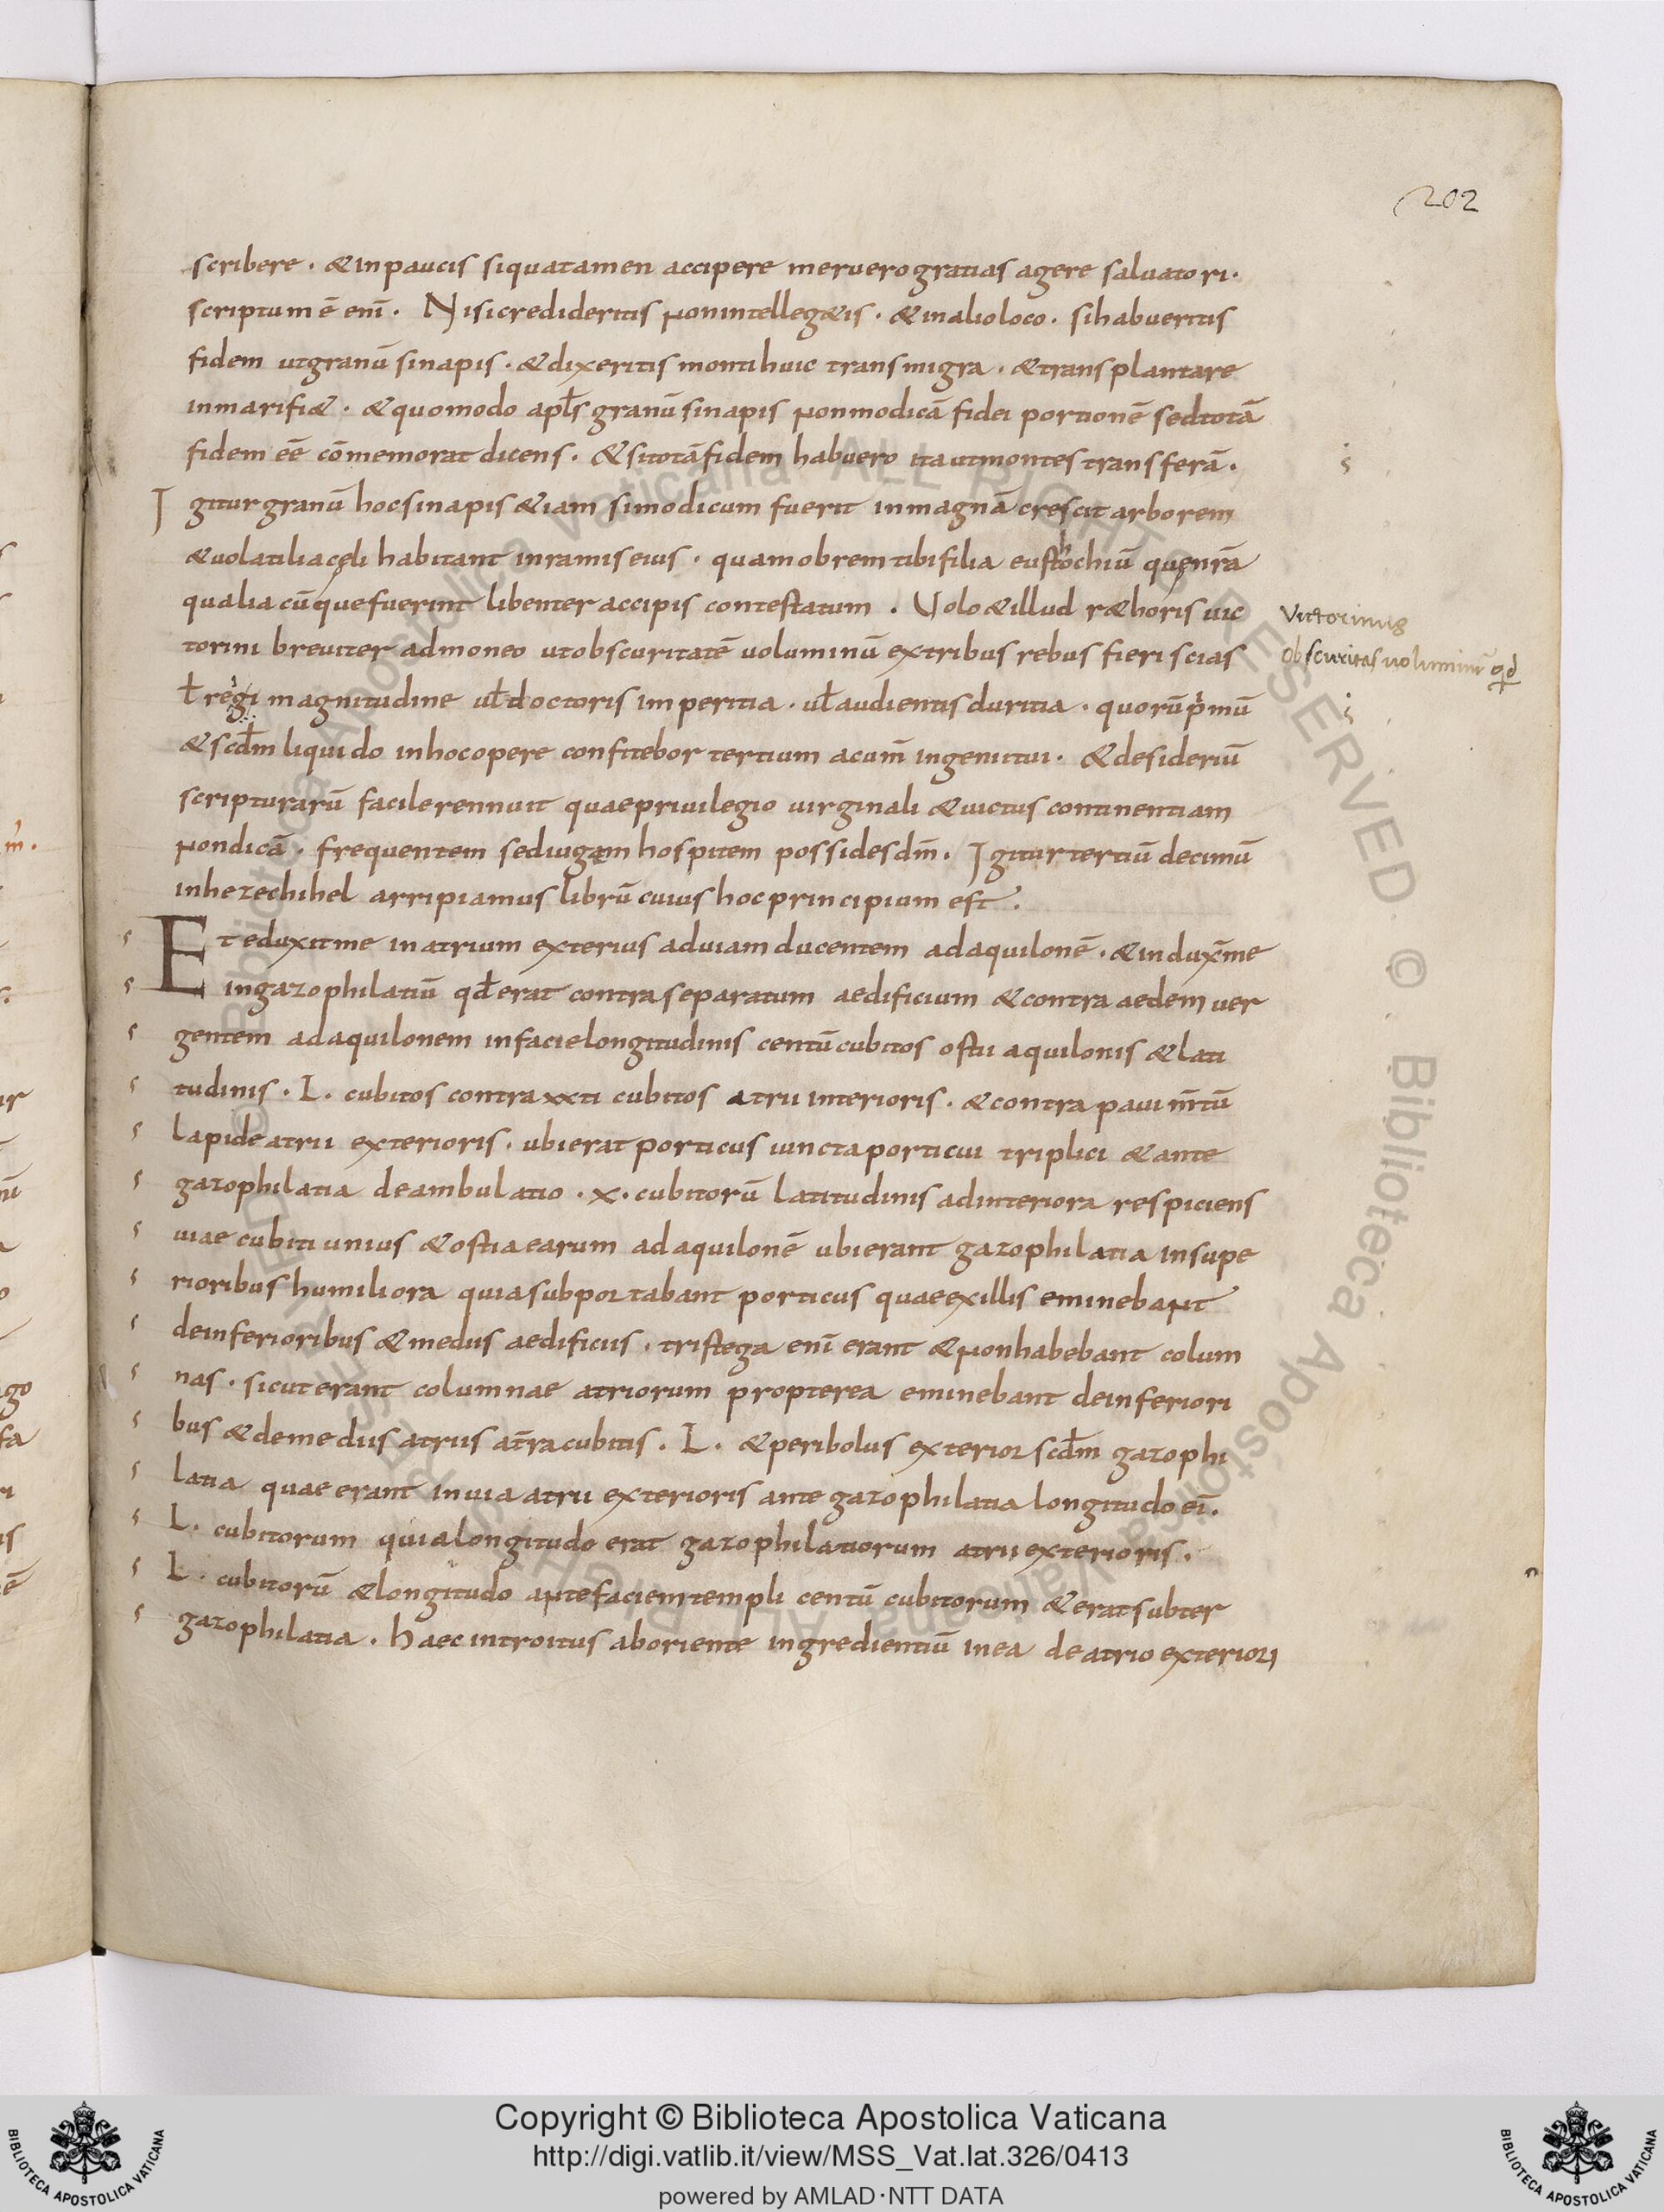 202
scribere · & inpaucis siquatamen accipere meruero gratias agere saluatori ·
scriptum ē enī · Nisi credideritis non intelleg&is · & in alio loco · si habueritis
fidem ut granū sinapis · & dixeritis monti huic transmigra · & transplantare
in mari fi& · & quomodo apłs granū sinapis non modicā fidei portionē sed totā
fidem eē cōmemorat dicens · & si totā fidem habuero ita ut montes transferā ·
Igitur granū hoc sinapis &iam si modicum fuerit in magnā crescit arborem
& uolatilia cęli habitant in ramis eius · quam obrem tibi filia eustochiū quę nr̄a
qualia cūque fuerint libenter accipis contestatum · Uolo & illud r&horis uic
Victorinus
torini breuiter admoneo ut obscuritatē uoluminū ex tribus rebus fieri scias
obscuritas uoluminū
ł regi magnitudine uł doctoris imperitia · uł audientis duritia · quorū p̄mū
& scdm liquido in hoc opere confitebor tertium acum̄ ingenii tui · & desideriū
scripturarū facile rennuit quae priuilegio uirginali & uictus continentiam
non dicā · frequentem sed iugem hospitem possides dm̄ · Igitur tertiū decimū
in hezechihel arripiamus librū cuius hoc principium est ·
Et eduxit me in atrium exterius ad uiam ducentem ad aquilonē · & indux̄ me
in gazophilatiū qđ erat contra separatum aedificium & contra aedem uer
gentem ad aquilonem in facie longitudinis centū cubitos ostii aquilonis & lati
tudinis · L · cubitos contra xxti cubitos atrii interioris · & contra pauim̄tū
lapide atrii exterioris · ubi erat porticus iuncta porticui triplici & ante
gazophilatia deambulatio · x · cubitorū latitudinis ad interiora respiciens
uiae cubiti unius & ostia earum ad aquilonē ubi erant gazophilatia in supe
rioribus humiliora quia subportabant porticus quae ex illis eminebant
de inferioribus & mediis aedificiis · tristega enī erant & non habebant colum
nas · sicut erant columnae atriorum propterea eminebant de inferiori
bus & de mediis atriis at̄ra cubitis · L · & peribolus exterior scdm gazophi
latia quae erant in uia atrii exterioris ante gazophilatia longitudo eī ·
L · cubitorum quia longitudo erat gazophilatiorum atrii exterioris ·
L · cubitorū & longitudo ante faciem templi centū cubitorum & erat subter
gazophilatia · haec introitus ab oriente ingredientiū in ea de atrio exteriori
Copyright © Biblioteca Apostolica Vaticana
http://digi.vatlib.it/view/MSS_Vat.lat.326/0413
powered by AMLAD·NTT DATA